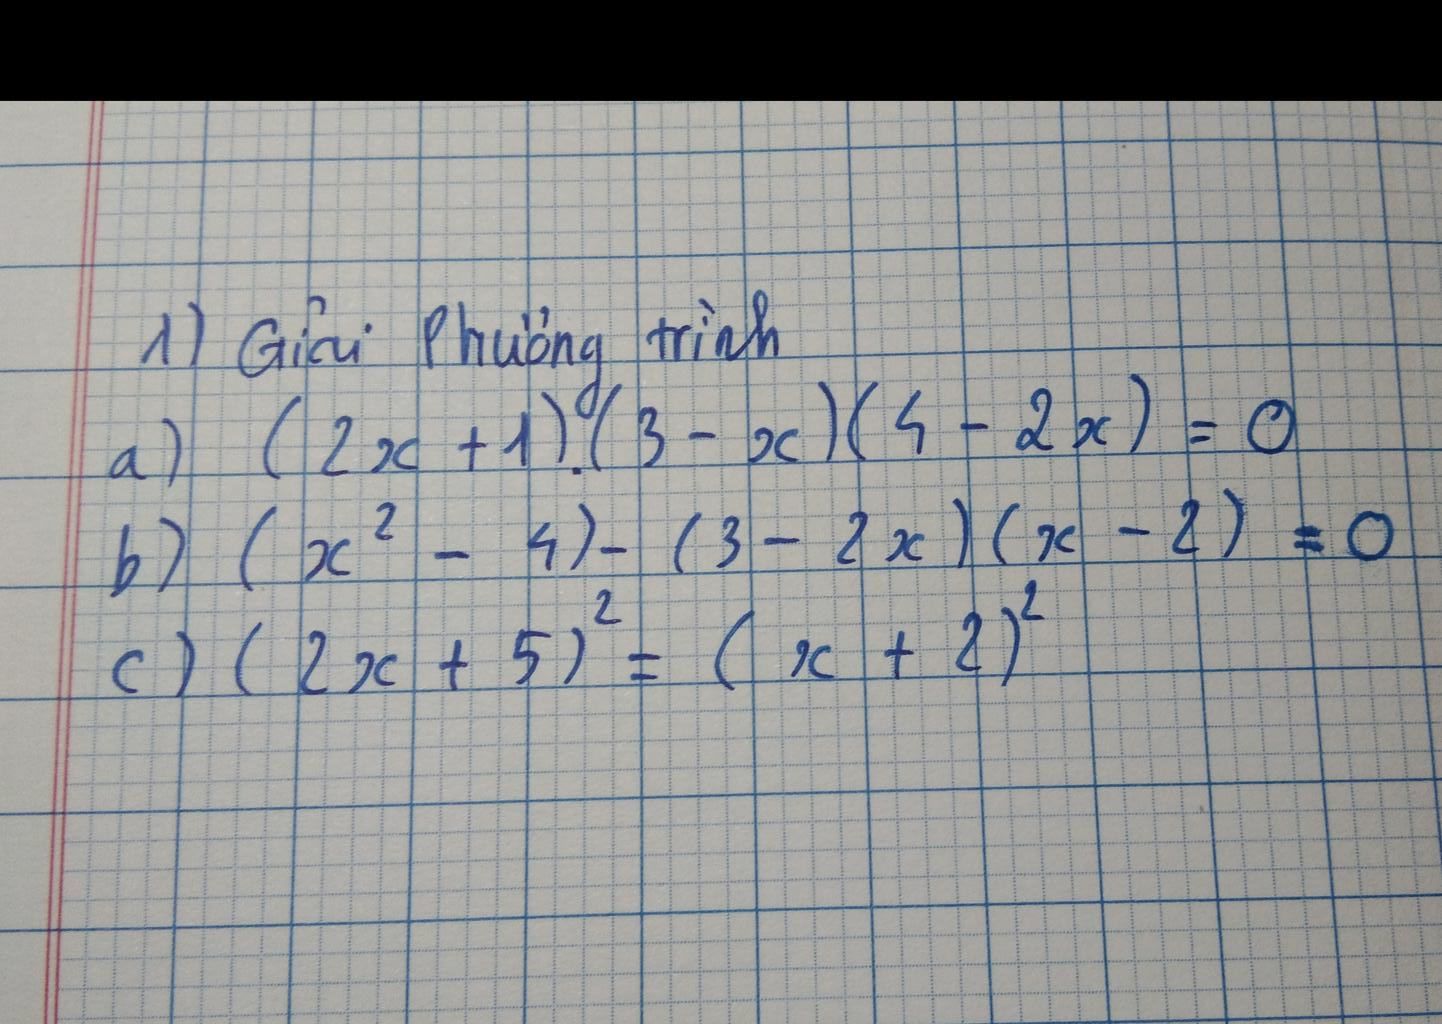 1) Giải Phương trình
a) (2x + 1).(3 - x)(4 - 2x) = 0
b) (x² - 4) - (3 - 2x)(x - 2) = 0
c) (2x + 5)² = (x + 2)²